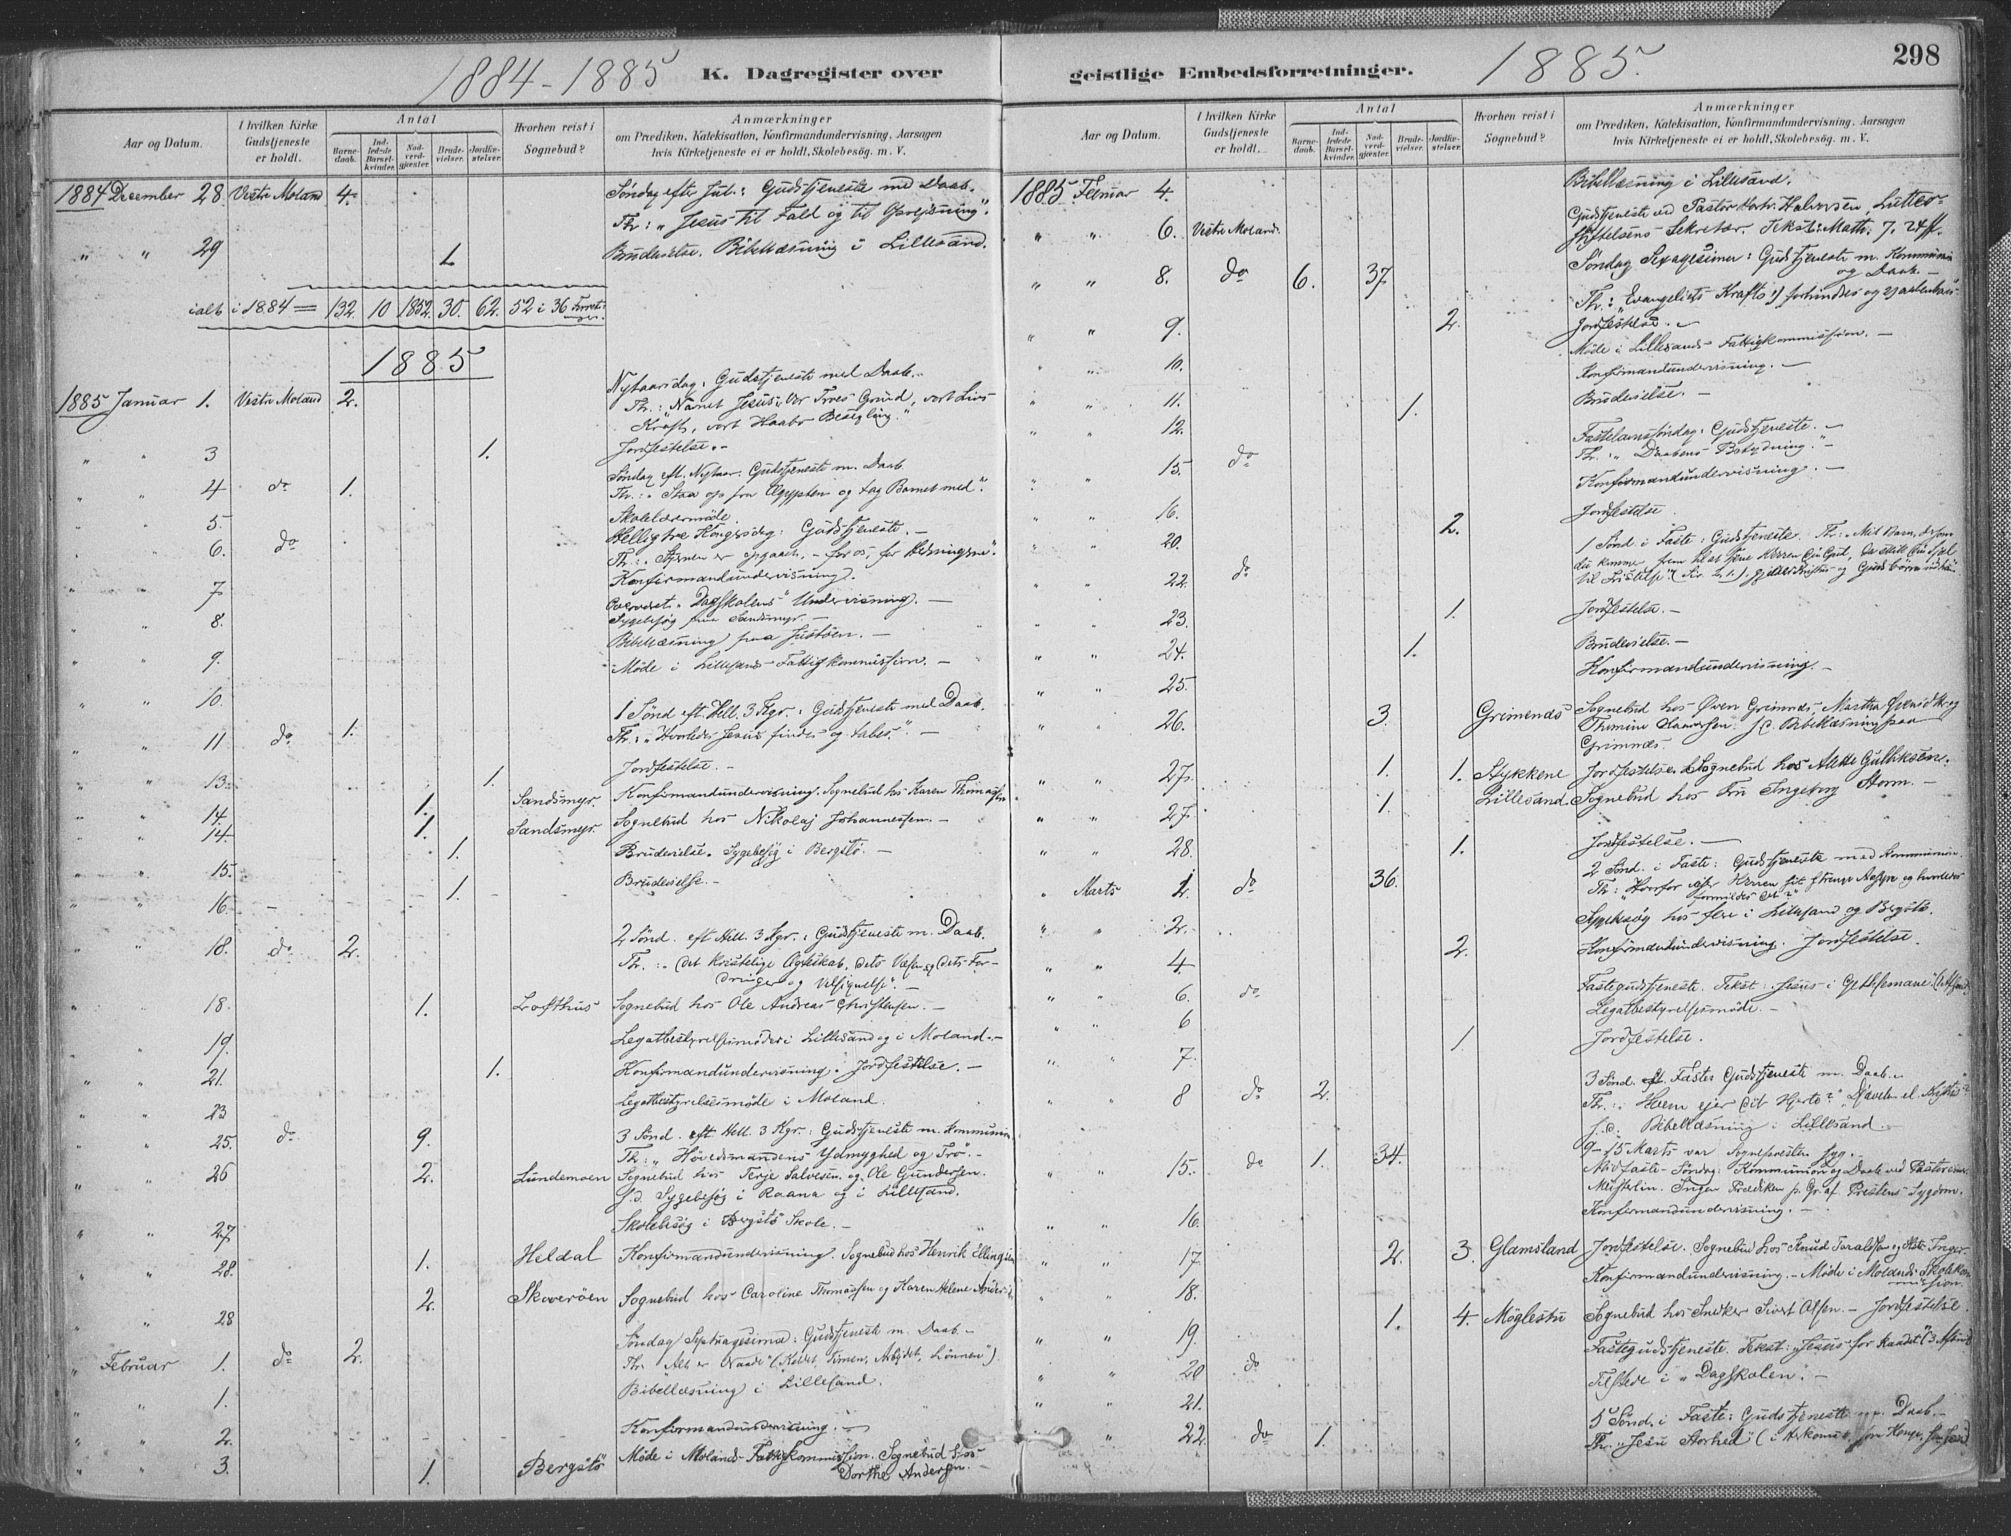 1884-1885 K. Dagregister over
Aar og Datum. I hvilken Kirke Gudstjeneste er holdt. Antal Barnedaab. Indledede Barselkvinder. Nadverdgjester. Brudevielser. Jordfæstelser. Hvorhen reist i Sognebud? Anmærkninger om Prædiken, Katekisation, Konfirmandundervisning, Aarsagen hvis Kirketjeneste ei er holdt, Skolebesøg. m. V.
1884 December 28. Vestre Moland 4. Søndag efter Jul: Gudstjeneste med Daab.
Th: "Jesus til Fald og til Opreisning".
" " 29 1. Brudevielse. Bibellæsning i Lillesand.
ialt i 1884 = 132. 10 1852. 30. 62. 52 i 36 Forretninger.
1885
1885 Januar 1. Vestre Moland 2. Nytaarsdag: Gudstjeneste med Daab.
Th: "Navnet Jesus: Vor Troes Grund, vort Livs
Kraft, vort Haabs Besegling."
" " 3 1. Jordfestelse.
" " 4 do 1. Søndag eft. Nytaar. Gudstjeneste m. Daab
Th: "Staa op fra Ægypten og tag Barnet med".
" " 5. Skolelærermøde.
" " 6. do Hellig tre Kongersdag: Gudstjeneste.
Th: "Stjernen er opgaaet, - for os, for Hedningerne".
" " 7 Konfirmandundervisning.
" " 8. Overværet "Dagskolens" Undervisning.
Sygebesøg paa Sandsmyr.
" " 9. Bibellæsning paa Justøen.
" " 10. Møde i Lillesands Fattigkommission.
" " 11 do 1. 1 Sønd eft. Hell. 3 Kgr.: Gudstjeneste med Daab.
Th: "Hvorledes Jesus findes og tabes".
" " 13. 1. Jordfestelse.
" " 14. 1. Sandsmyr. Konfirmandundervisning. Sognebud hos Karen Thomassen
" " 14. 1. Sandsmyr. Sognebud hos Nikolaj Johannessen.
" " 15. 1. Brudevielse. Sygebesøg i Bergstø.
" " 16. - 1. Brudevielse.
" " 18. do 2. 2 Sønd. eft Hell. 3 Kgr.: Gudstjeneste m. Daab.
Th: "Det kristelige Ægteskab, dets Væsen og dets Fordringer og Velsignelse".
" " 18. 1. Lofthus Sognebud hos Ole Andreas Christensen.
" " 19. Legatbestyrelsesmøder i Lillesand og i Moland.
" " 21. 1. Konfirmandundervisning. Jordfestelse.
" " 23 Legatbestyrelsesmøde i Moland.
" " 25. do 9. 3 Sønd. eft Hell. 3 Kgr: Gudstjeneste m. Kommunion
Th: "Høvedsmandens Ydmyghed og Tro".
" " 26 2. Lundemoen Sognebud hos Terje Salvesen og Ole Gundersen.
s. d. Sygebesøg i Raana og i Lillesand.
" " 27 Skolebesøg i Bergstø Skole.
" " 28. 1. Heldal Konfirmandundervisning. Sognebud hos Henrik Ellingsen
" " 28 2. Skoverøen Sognebud hos Caroline Thomassen og Karen Helene Anders
" Februar 1. do 2. Søndag Septuagesima: Gudstjeneste m. Daab.
Th. Alt er Naade (Kaldet, Timen, Arbejdet, Lønnen).
" " 1. Bibellæsning i Lillesand.
" " 2. Konfirmandundervisning.
" " 3. 1. Bergstø Møde i Molands Fattigkommission. Sognebud hos
Dorthe Andersen.
geistlige Embedsforretninger. 1885. 298
Aar og Datum. I hvilken Kirke Gudstjeneste er holdt. Antal Barnedaab. Indledede Barselkvinder. Nadverdgjester. Brudevielser. Jordfæstelser. Hvorhen reist i Sognebud? Anmærkninger om Prædiken, Katekisation, Konfirmandundervisning, Aarsagen hvis Kirketjeneste ei er holdt, Skolebesøg. m. V.
1885 Februar 4. Bibellæsning i Lillesand.
" " 6. Vestre Moland. Gudstjeneste ved Pastor Halvorsen, Lutherstiftelsens Sekretær. Tekst: Math. 7. 24 ff.
" " 8. do 6. 37 Søndag Sexagesima: Gudstjeneste m. Kommunion
og Daab
Th: "Evangeliets Kraft 1) forhindres og 2) aabenbares"
" " 9. 2. Jordfestelse.
" " 10. Møde i Lillesands Fattigkommission.
" " 11. Konfirmandundervisning.
" " 12. 1. Brudevielse.
" " 15. do Fastelavnssøndag: Gudstjeneste.
Th: "Daabens Betydning."
" " 16. Konfirmandundervisning.
" " 20. 2. Jordfestelse.
" " 22. do 1 Sønd. i Faste: Gudstjeneste. Th: "Mit Barn, dersom
du kommer frem til at tjene Herren din Gud, da skik din Sjæl
til Fristelse" (Sir. 2, 1.)
" " 23. 1. Jordfestelse.
" " 24. 1. Brudevielse.
" " 25. Konfirmandundervisning.
" " 26. 3. Grimenæs Sognebud hos Øven Grimnæs, Martha
Bibellæsning paa
Grimnæs.
" " 27. 1. 1. Stykkene Jordfestelse. Sognebud hos Alette Gulliksen.
" " 27. 1. Lillesand Sognebud hos Fru Ingeborg Storm.
" " 28. 1. Jordfestelse.
" Marts 1. do 36. 2 Sønd. i Faste: Gudstjeneste med Kommunion.
Th: "Hvorfor Herren sit strenge Aasyn og hvorledes
formildes det?"
" " 2. Sygebesøg hos flere i Lillesand og Bergstø.
" " 4. 2. Konfirmandundervisning. Jordfestelse.
" " 6. do Fastegudstjeneste. Tekst: Jesus i Gethsemane.
" " 6 Legatbestyrelsesmøde.
" " 7. 1. Jordfestelse.
" " 8 do 2. 3 Sønd. Faste: Gudstjeneste m. Daab.
Th: "Hvem ejer dit Hjerte?" Djævelen el. Kristus?
s. d. Bibellæsning i Lillesand.
9-15 Marts var Sognepresten syg.
" " 15. do 1. 34. Midfaste-Søndag: Kommunion og Daab ved Pastor
Ingen Prædiken p. Gr. af Prestens Sygdom.
" " 16. Konfirmandundervisning.
" " 17. 2. 3. Glamsland Jordfestelse. Sognebud hos Knud Taraldsen og Inger.
" " 18. Konfirmandundervisning. - Møde i Molands Skolekommission.
" " 19. 1. 4. Møglestu Sognebud hos Snedker Sivert Olsen. - Jordfestelse.
" " 20 do Fastegudstjeneste. Tekst: "Jesus for Raadet"
" " 21. Tilstede i "Dagskolen".
" " 22. do 1. 5 Sønd. i Faste: Gudstjeneste m. Daab.
Th. "Jesu Storhed"